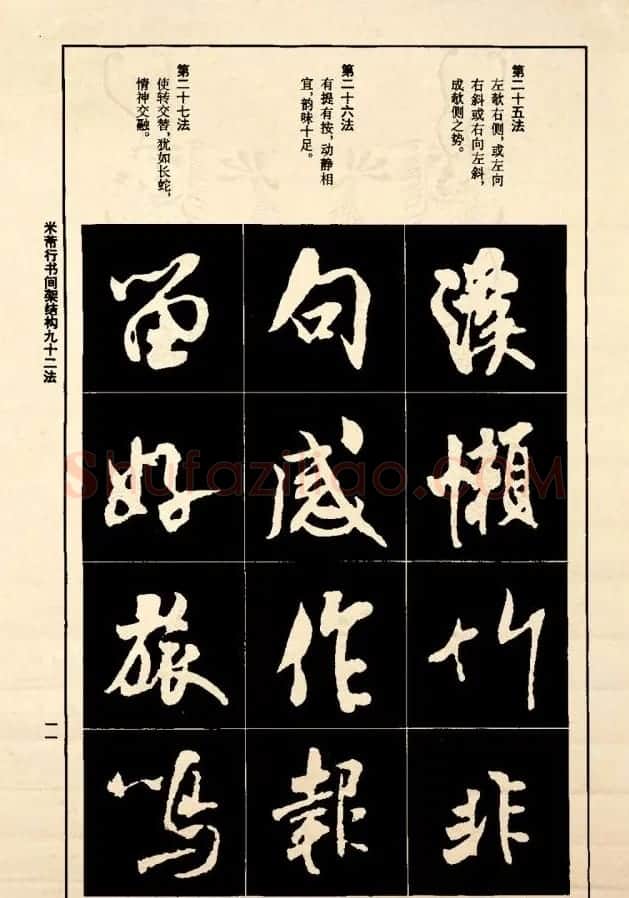 第二十五法
左欹右侧，或左向
右斜或右向左斜，
成欹侧之势。
第二十六法
有提有按，动静相
宜，韵味十足。
第二十七法
使转交替，犹如长蛇，
情神交融。
漢
懶
竹
非
句
感
作
報
留
好
旅
鳴
米芾行书间架结构九十二法
一一
Shufaziliao.com